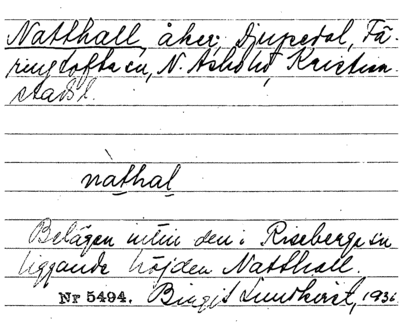 Natthall, åker, Djupedal, Fä-
ringtofta sn, N. Åsbo hd, Kristian-
stads l.
nathal
Belägen intill den i Riseberga sn
liggande höjden Natthall.
Nr 5494. Birgit Lundkvist, 1936